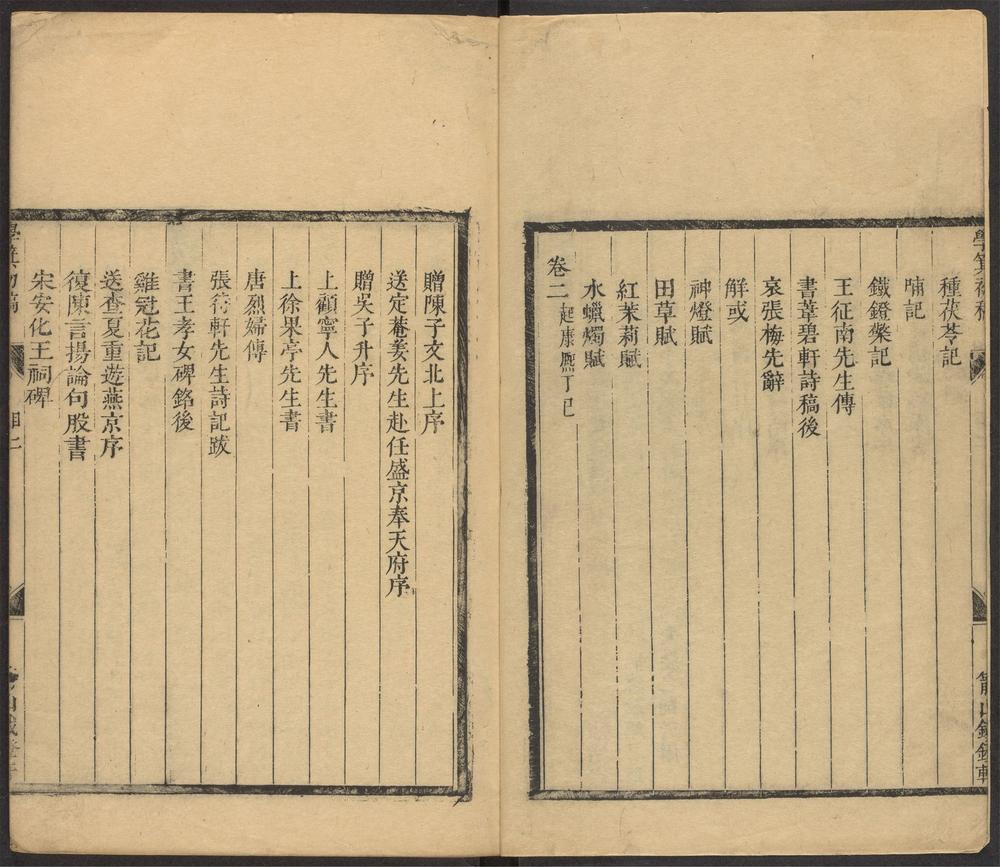 種茯苓記
哺記
鐵鐙檠記
王征南先生傳
書葦碧軒詩稿後
哀張梅先辭
解或
神燈賦
田草賦
紅茉莉賦
水蠟燭賦
卷二起康熙丁巳
贈陳子文北上序
送定菴姜先生赴任盛京奉天府序
贈吳子升序
上顧寧人先生書
上徐果亭先生書
唐烈婦傳
張待軒先生詩記跋
書王孝女碑銘後
雞冠花記
送查夏重遊燕京序
復陳言揚論句股書
宋安化王祠碑